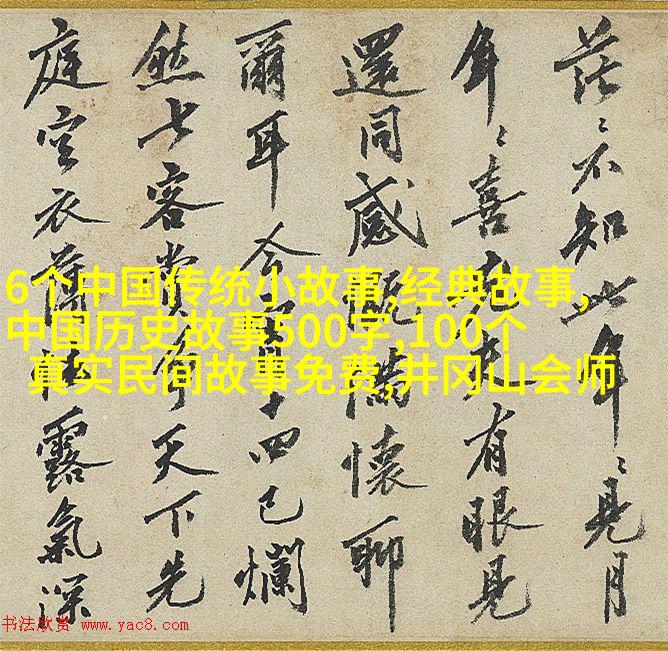 茫〻不知此年〻見月
年〻喜有眼見
還同感懷聊
爾耳今十四已爛
然七客賞天下先
庭空衣薄露氣深
6个中国传统小故事,经典故事,
中国历史故事500字,100个
真实民间故事免费,井冈山会师
书法欣赏 www.yac8.com